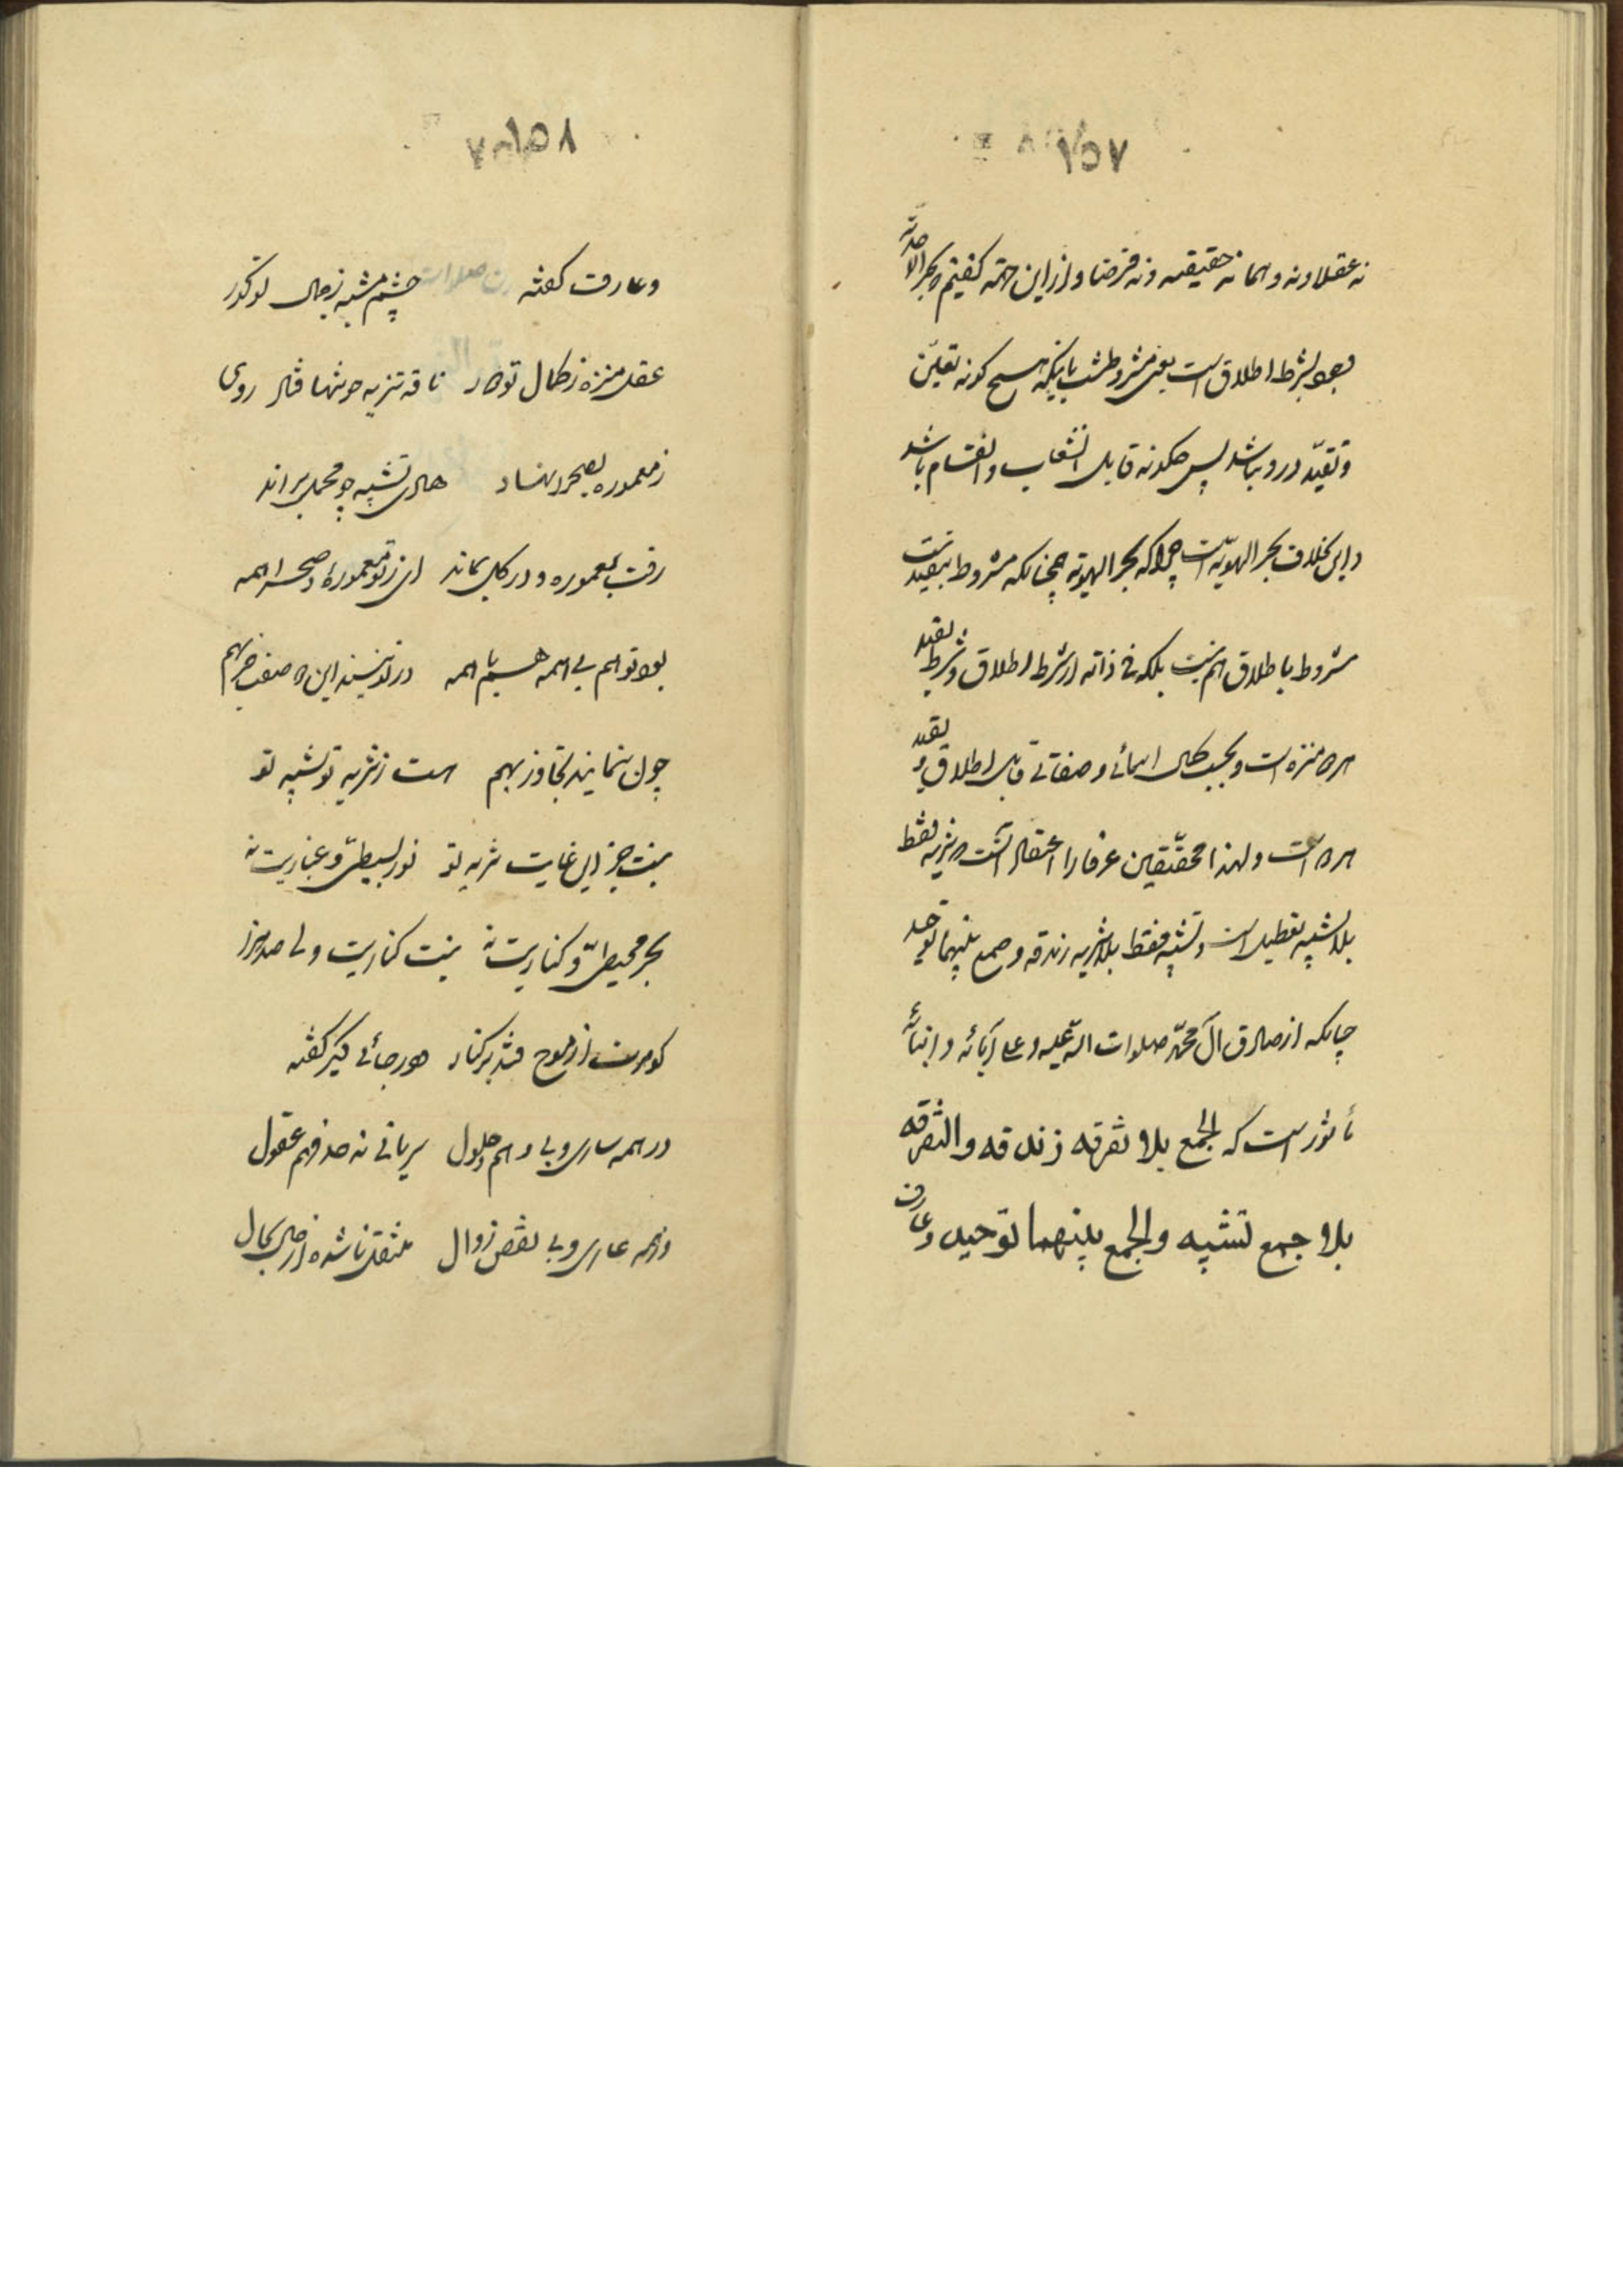 ۱۵۷
نه عقلا ونه وهما نه حقیقه ونه فرضا واز این جهة کفتیم بحر الاحدیّة
وجود بشرط اطلاق است یعنی مشروطست باینکه هیچ کونه تعیّن
وتقیّد درو نباشد پس چکونه قابل انشعاب وانقسام باشد
واین بخلاف بحر الهویّة است چراکه بحر الهویة چنانکه مشروط بتقیید نیست
مشروط باطلاق هم نیست بلکه فی ذاته از شرط اطلاق وشرط تقید
هر دو منزه است وبحسب کمال اسمائی وصفاتی قابل اطلاق وتقید
هر دو است ولهذا محقّقین عرفا را اعتقاد آنست که تنزیه فقط
بلا تشبیه تعطیل است وتشبیه فقط بلا تنزیه زندقه وجمع بینهما توحید
چنانکه از صادق آل محمّد صلوات الله علیه وعلی آبائه وابنائه
مأثور است که الجمع بلا تفرقه زندقه والتفرقه
بلا جمع تشبیه والجمع بینهما توحید وعارف
۱۵۸
وعارف کفته چشم مشبه ز جمال تو کور
عقل منزه ز کمال تو دور ناقه تنزیه چو تنها فتاد روی
ز معموره بصحرا نهاد هادی تشبیه چو محمل براند
رفت بمعموره ودر کل بماند ای ز تو معموره وصحرا همه
بی تو هم بی همه هم با همه در تو نبینند این دو صفت جز بهم
چون ننمایند تجاوز بهم هست ز تنزیه تو تشبیه تو
نیست جز این غایت تنزیه تو نور بسیطی وغباریت نه
بحر محیطی وکناریت نه نیست کناریت ولی صد هزار
کوهرت از موج فتد بر کنار هو رجائی دیکر کفته
در همه ساری وبی وهم حلول سریانی نه حد فهم عقول
وز همه عاری وبی نقص زوال منتقل ناشده از حال بحال